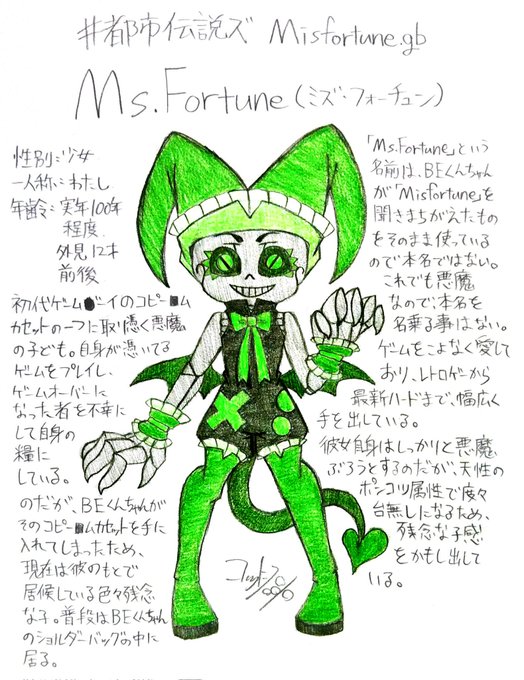 #都市伝説ズ Misfortune.gb
Ms.Fortune(ミズ・フォーチュン)
性別:少女
一人称:わたし
年齢:実年100年
程度
外見12才
前後
初代ゲーム●ーイのコピー■ム
カセットの一つに取り憑く悪魔
の子ども。自身が憑いてる
ゲームをプレイし、
ゲームオーバーに
なった者を不幸に
して自身の
糧に
している。
のだが、BEくんちゃんが
そのコピー■ムカセットを手に
入れてしまったため、
現在は彼のもとで
居候している色々残念
な子。普段はBEくんちゃん
のショルダーバッグの中に
居る。
「Ms.Fortune」という
名前は、BEくんちゃん
が「Misfortune」を
聞きまちがえたもの
をそのまま使っている
ので本名ではない。
これでも悪魔
なので、本名を
名乗る事はない。
ゲームをこよなく愛して
おり、レトロゲーから
最新ハードまで、幅広く
手を出している。
彼女自身はしっかりと悪魔
ぶろうとするのだが、天性の
ポンコツ属性で度々
台無しになるため、
残念な子感
をかもし出して
いる。